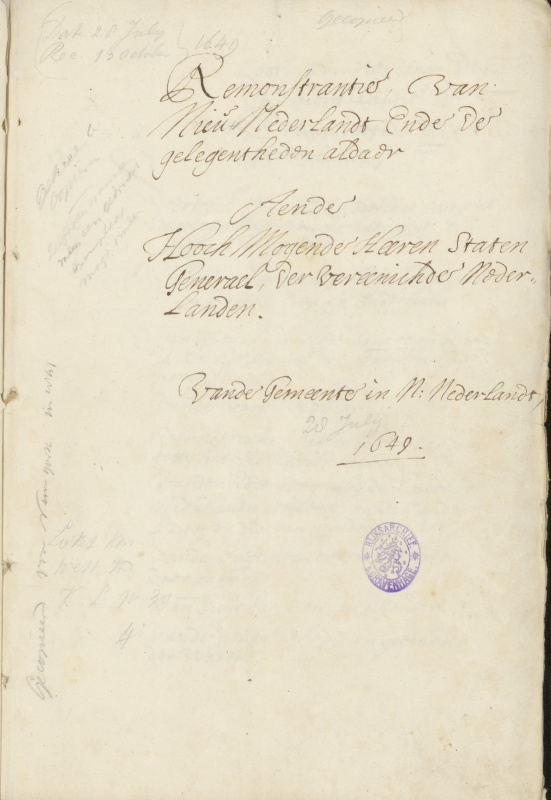 Dat. 28 July
Rec. 13 Octobr
1649
Gecopieerd
Remonstrantie, Van
Nieu-Nederlandt Ende de
gelegentheden aldaer
Aende
Hooch Mogende Heeren Staten
Generael, der Vereenichde Neder-
Landen.
Vande Gemeente in N: Nederlandt,
28 July
1649.
RIJKSARCHIEF
S'GRAVENHAGE
Gecopieerd voor New York in 1841
4